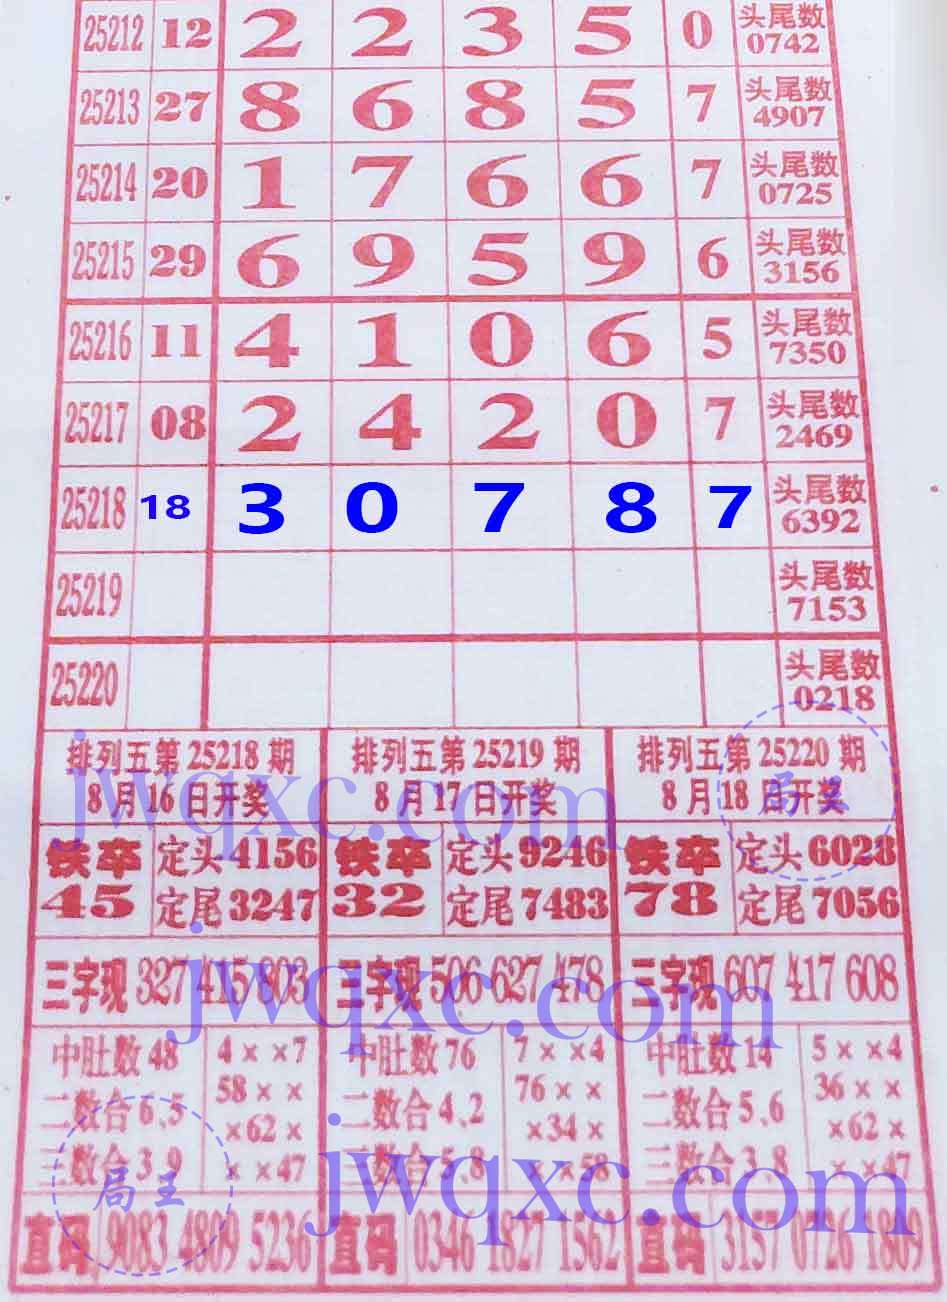 25212 12 2 2 3 5 0 头尾数
0742
25213 27 8 6 8 5 7 头尾数
4907
25214 20 1 7 6 6 7 头尾数
0725
25215 29 6 9 5 9 6 头尾数
3156
25216 11 4 1 0 6 5 头尾数
7350
25217 08 2 4 2 0 7 头尾数
2469
25218 18 3 0 7 8 7 头尾数
6392
25219 头尾数
7153
25220 头尾数
0218
排列五第25218期 排列五第25219期 排列五第25220期
8月16日开奖 8月17日开奖 8月18日开奖
jwqxc.com
铁卒 定头4156 铁卒 定头9246 铁卒 定头6028
45 定尾3247 32 定尾7483 78 定尾7056
jwqxc.com
三字现 327 415 803 三字现 506 627 478 三字现 607 417 608
中肚数48 4××7 中肚数76 7××4 中肚数14 5××4
二数合6、5 58×× 二数合4、2 76×× 二数合5、6 36××
×62× ×34× ×62×
三数合3、9 ××47 三数合5、8 ××58 三数合3、8 ××47
局王 jwqxc.com
直码 9083 4809 5236 直码 0346 1827 1562 直码 3157 0726 1809